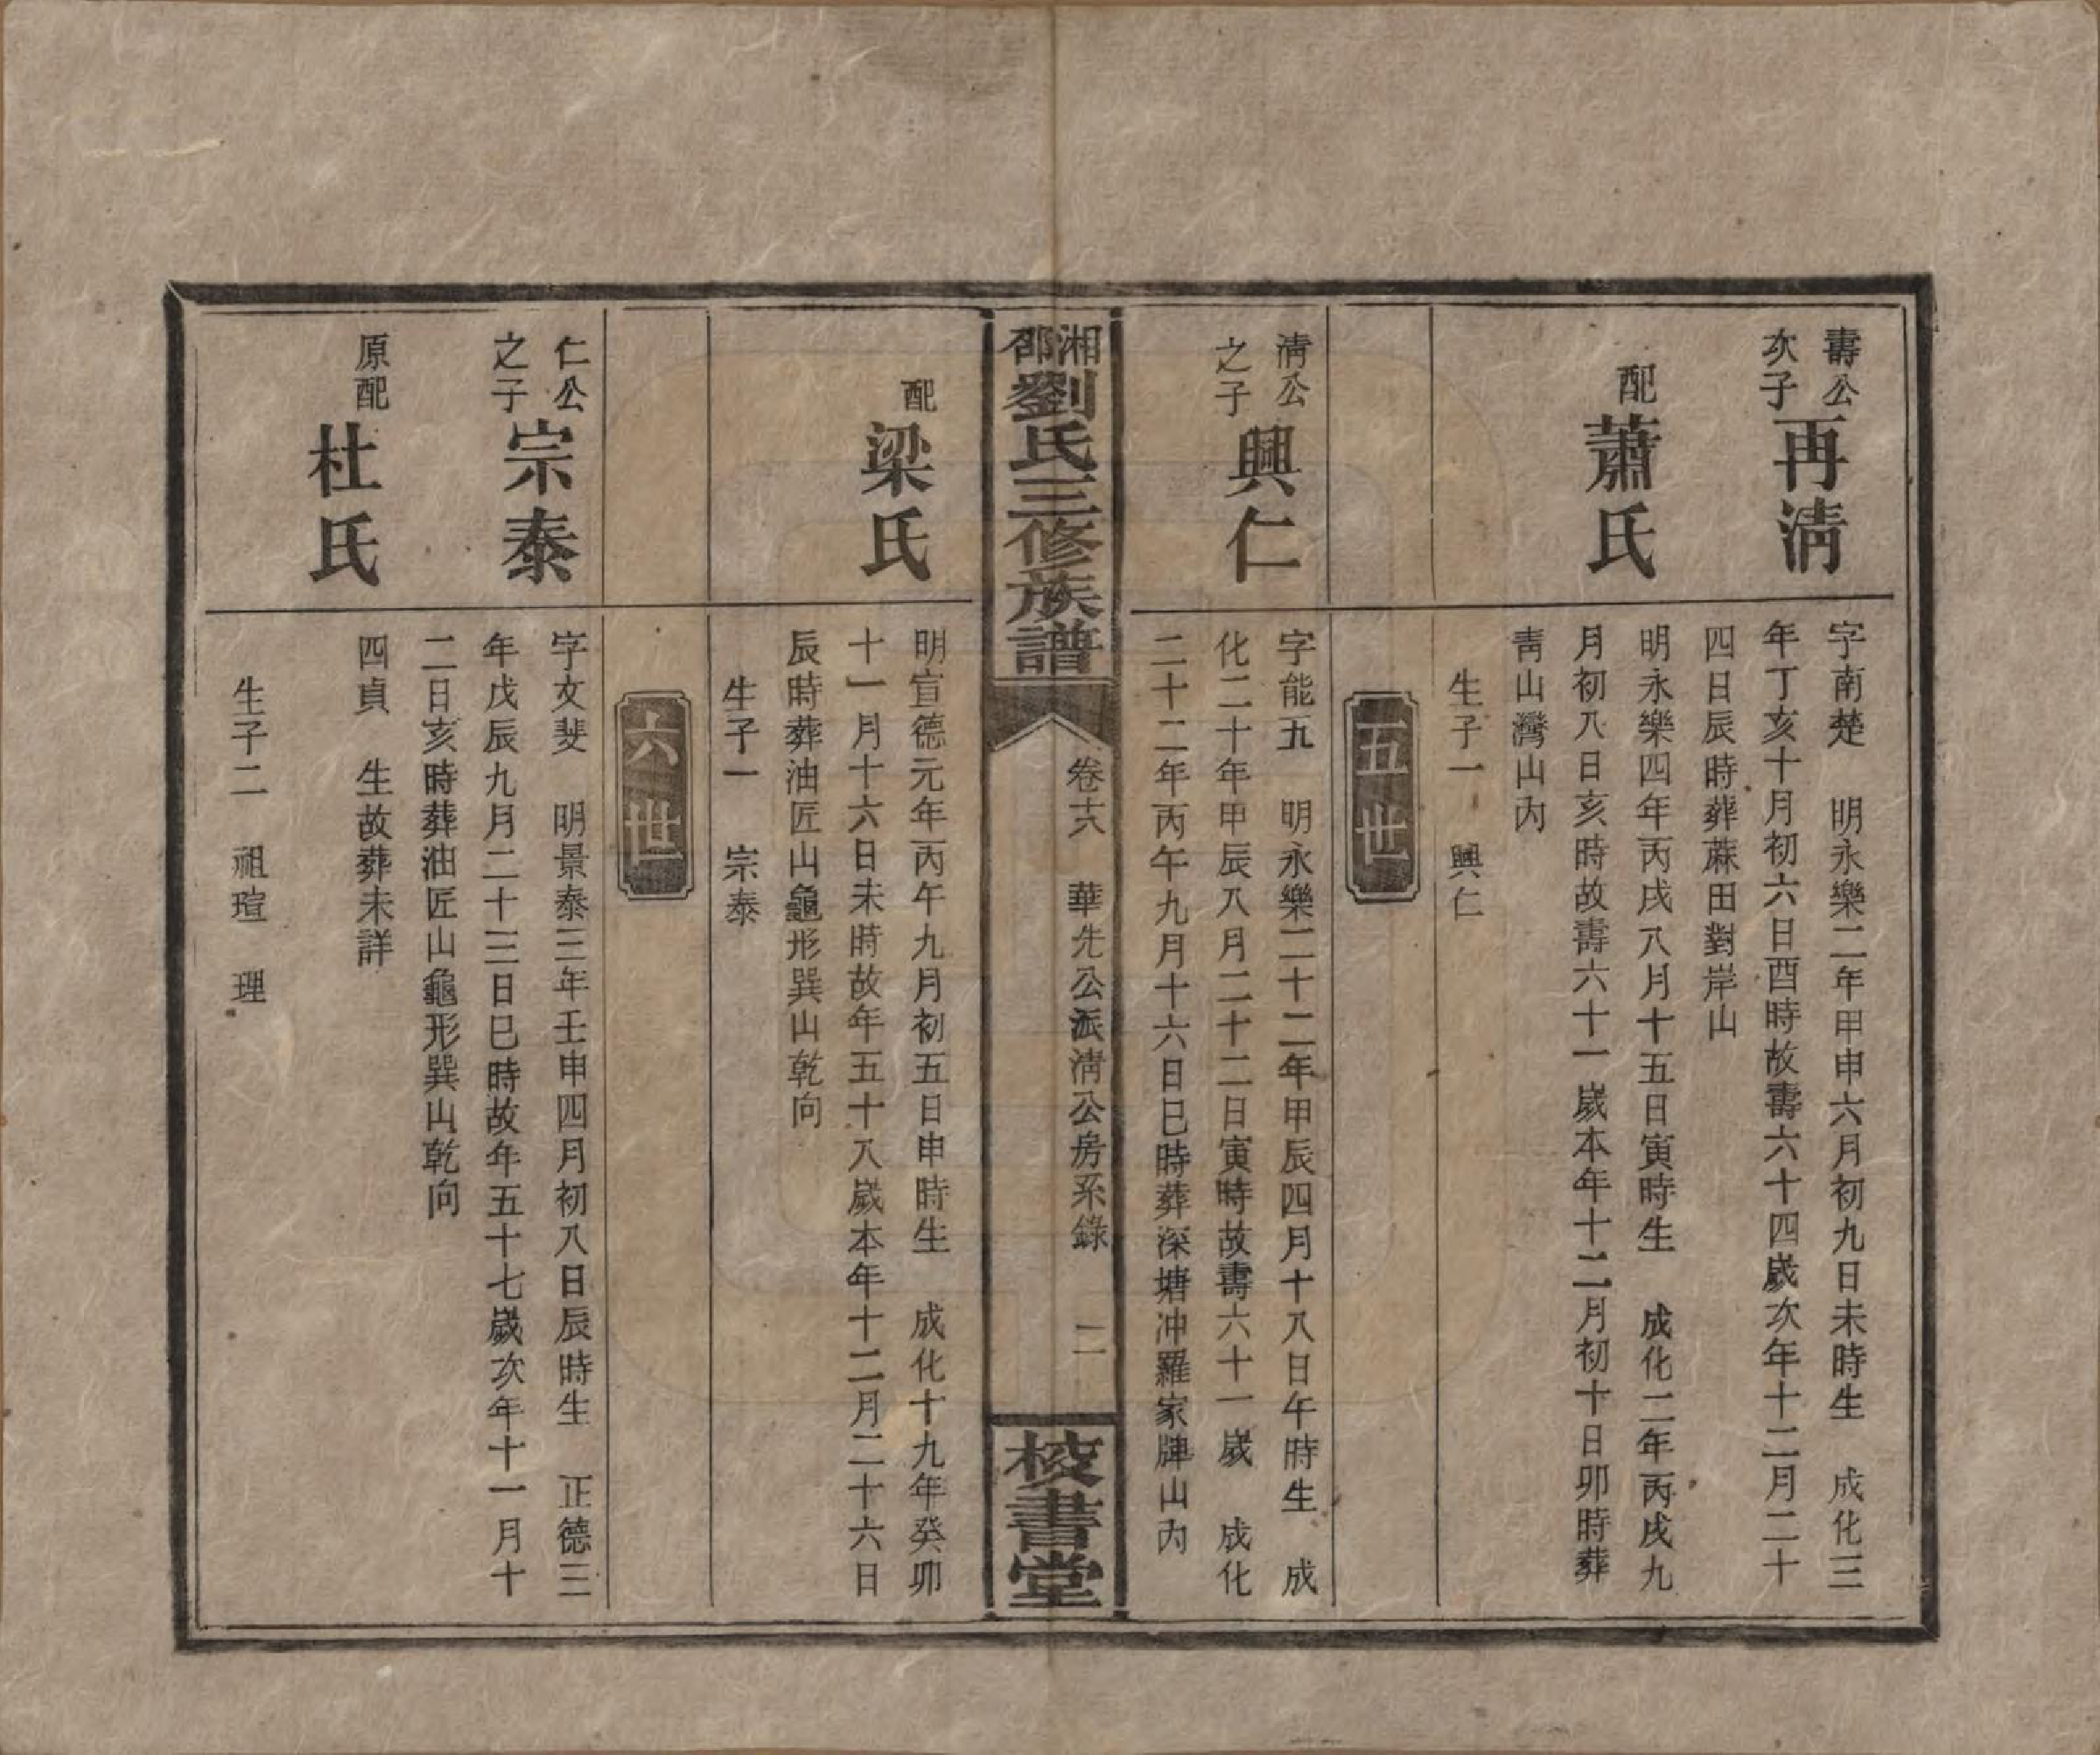 壽公
次子
再淸
字南楚　明永樂二年甲申六月初九日未時生　成化三
年丁亥十月初六日酉時故壽六十四歲次年十二月二十
四日辰時葬蔴田對岸山
配
蕭氏
明永樂四年丙戌八月十五日寅時生　成化二年丙戌九
月初八日亥時故壽六十一歲本年十二月初十日卯時葬
靑山灣山內
生子一　興仁
五世
淸公
之子
興仁
字能五　明永樂二十二年甲辰四月十八日午時生　成
化二十年甲辰八月二十二日寅時故壽六十一歲　成化
二十二年丙午九月十六日巳時葬深塘冲羅家牌山內
湘
邵
劉氏三修族譜
卷十六　華先公派淸公房系錄　二
校書堂
配
梁氏
明宣德元年丙午九月初五日申時生　成化十九年癸卯
十一月十六日未時故年五十八歲本年十二月二十六日
辰時葬油匠山龜形巽山乾向
生子一　宗泰
六世
仁公
之子
宗泰
字文斐　明景泰三年壬申四月初八日辰時生　正德三
年戊辰九月二十三日巳時故年五十七歲次年十一月十
二日亥時葬油匠山龜形巽山乾向
原配
杜氏
四貞　生故葬未詳
生子二　祖瑄　理